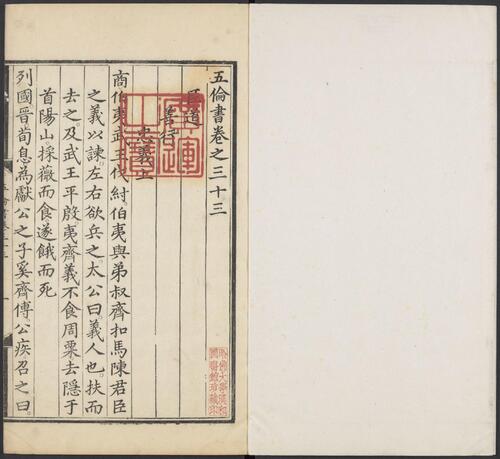 五倫書卷之三十三
臣道
善行
忠義上
商伯夷武王伐紂。伯夷與弟叔齊扣馬陳君臣
之義以諫。左右欲兵之。太公曰。義人也。扶而
去之。及武王平殷。夷齊義不食周粟。去隱于
首陽山。採薇而食。遂餓而死
列國晉荀息為獻公之子奚齊傅。公疾。召之曰。
廣運之寶
哈佛大學漢和
圖書館珍藏印